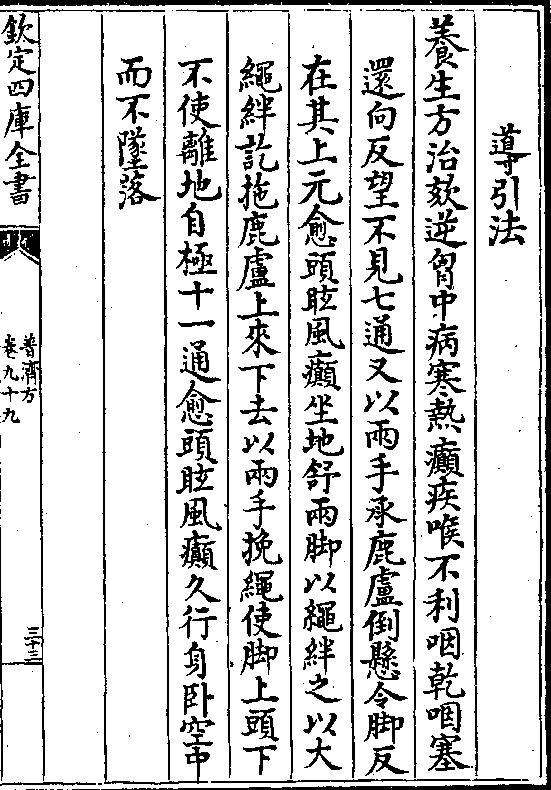 導引法
養生方治欬逆胷中病寒熱癲疾喉不利咽乾咽塞
還向反望不見七通又以兩手承鹿盧倒懸令脚反
在其上元愈頭眩風癲坐地舒兩脚以繩絆之以大
繩絆訖拖鹿盧上來下去以兩手挽繩使脚上頭下
不使離地自極十一通愈頭眩風癲久行身卧空中
而不墜落
欽定四庫全書
普濟方
卷九十九
三十三